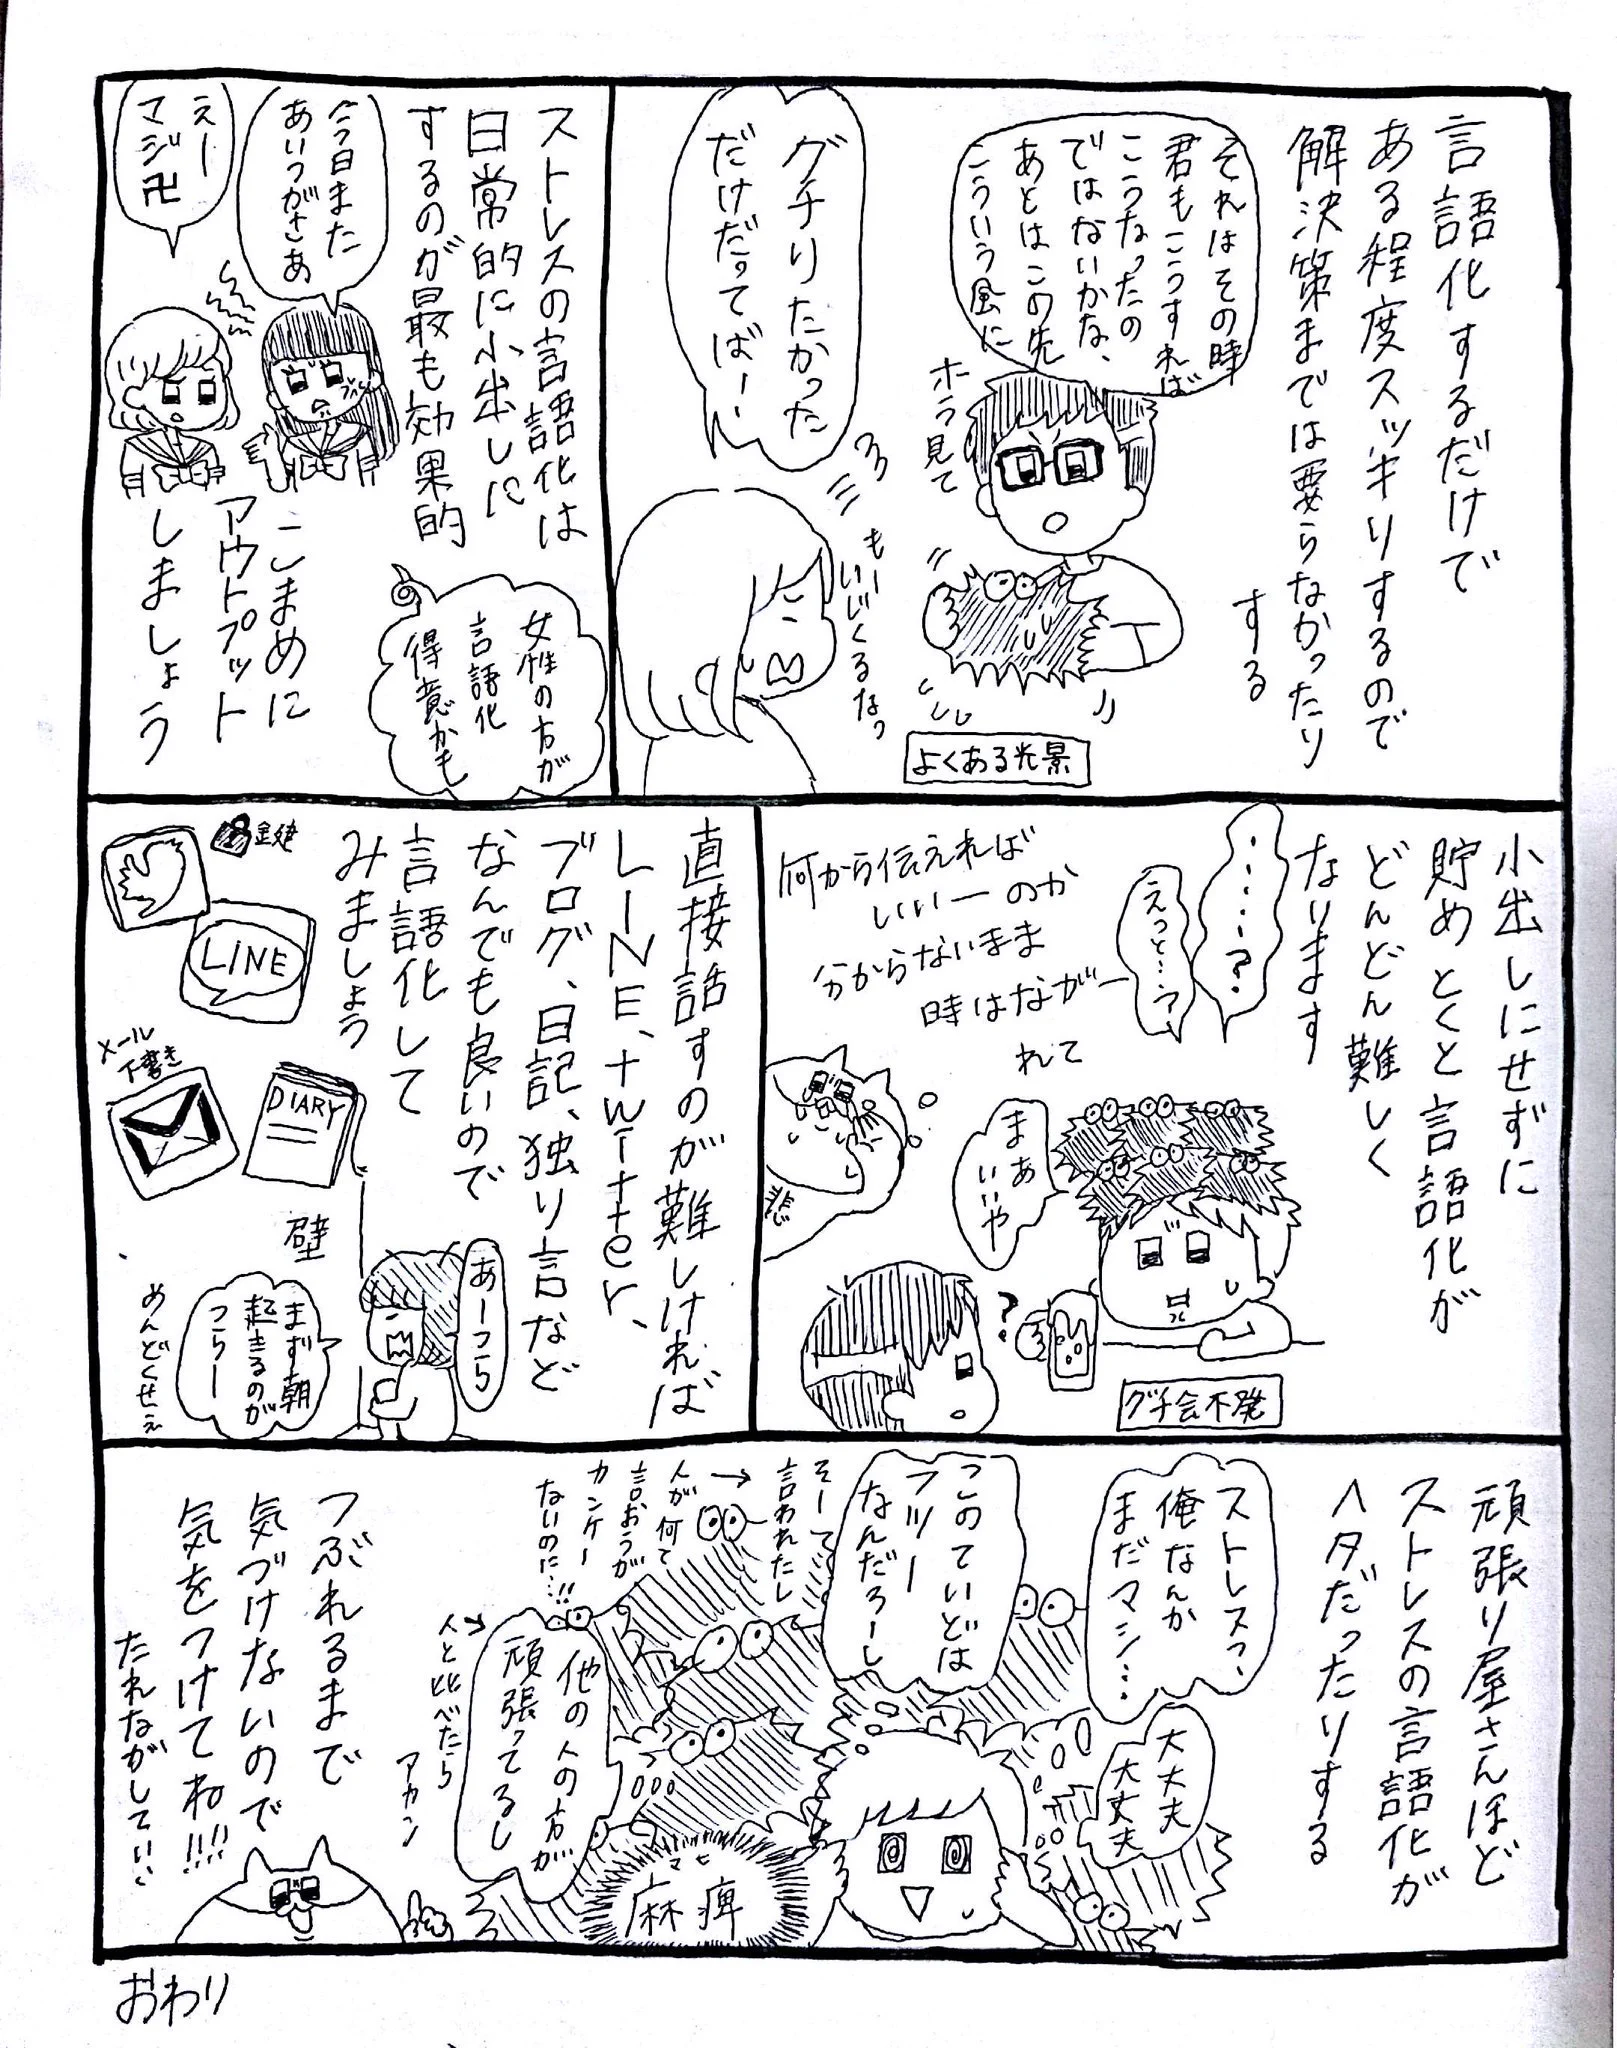 言語化するだけで
ある程度スッキリするので
解決策までは要らなかったり
する
それはその時
君もこうすれば
こうなったの
ではないかな、
あとはこの先
こういう風に
ホラ見て
グチりたかった
だけだってばー、
もーいじくるなっ
よくある光景
ストレスの言語化は
日常的に小出しに
するのが最も効果的
今日また
あいつがさあ
えー
マジ卍
こまめに
アウトプット
しましょう
女性の方が
言語化
得意かも
小出しにせずに
貯めとくと言語化が
どんどん難しく
なります
・・・・・?
えっと…?
何から伝えれば
いいーのか
分からないまま
時はながー
れて
まぁ
いいや
悲
?
グチ会不発
直接話すのが難しければ
LINE、twitter、
ブログ、日記、独り言など
なんでも良いので
言語化して
みましょう
鍵
LINE
メール
下書き
DIARY
壁
あーつら
まず朝
起きるのが
つらー
めんどくせえ
頑張り屋さんほど
ストレスの言語化が
ヘタだったりする
ストレスっ、
俺なんか
まだマシ…
大丈夫
大丈夫
このていどは
フツー
なんだろーし
そーて
言われたし
人が何て
言おうが
カンケー
ないのに…!!
他の人の方が
頑張ってるし
人と比べたら
アカン
マヒ
麻痺
つぶれるまで
気づけないので
気をつけてね!!!
たれながしてい
おわり